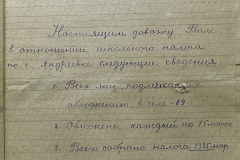 Настоящим довожу Вам
в отношений школьного налога
по с. Андреевке следующие сведения
1. Всех лиц, подлежащих
обложению в селе - 69
2. Обложены каждый по 15 марок
3. Всего собрано налога